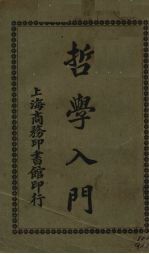 哲學入門
上海商務印書館印行